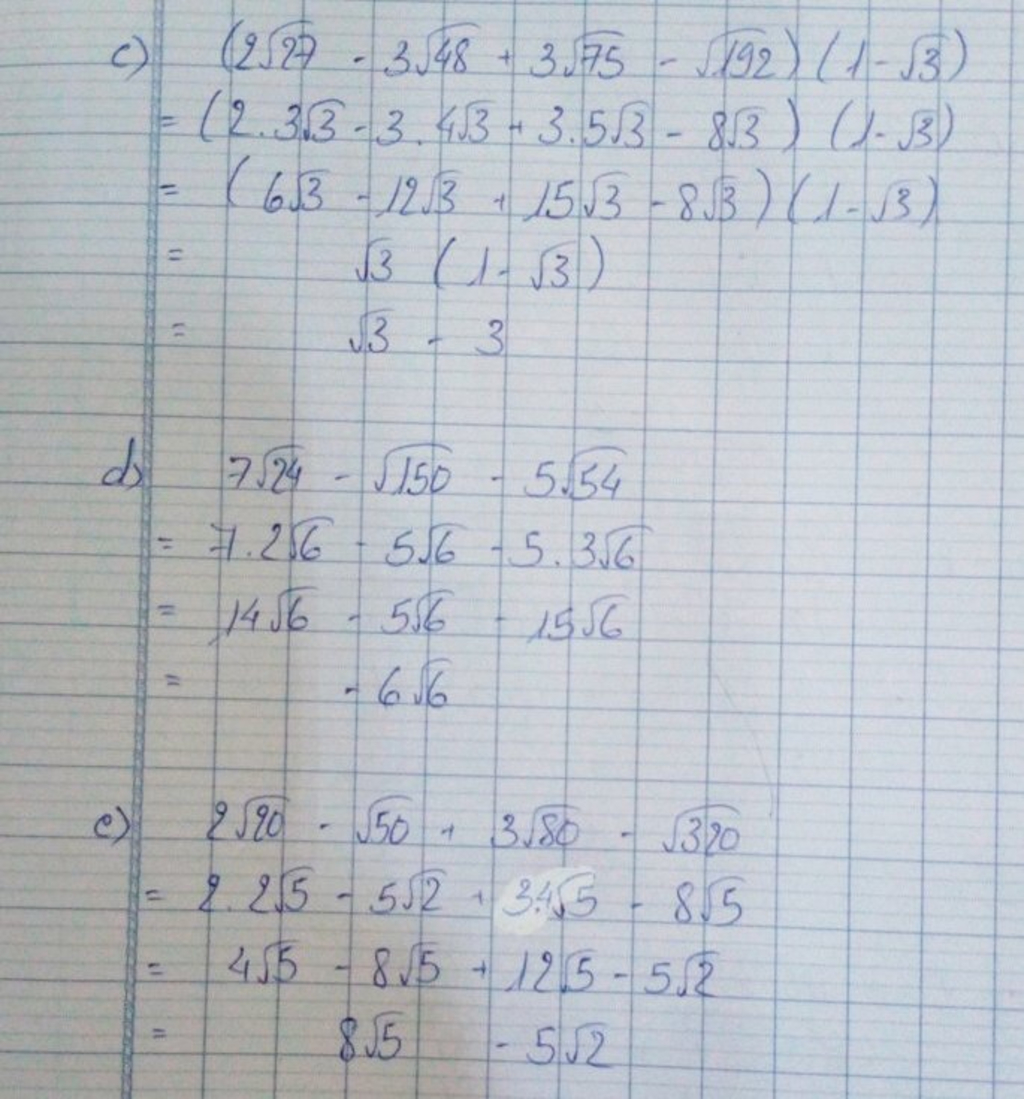 c) (2√27 - 3√48 + 3√75 - √192) (1 - √3)
= (2.3√3 - 3.4√3 + 3.5√3 - 8√3) (1 - √3)
= (6√3 - 12√3 + 15√3 - 8√3) (1 - √3)
= √3 (1 - √3)
= √3 - 3
d) 7√24 - √150 - 5√54
= 7.2√6 - 5√6 - 5.3√6
= 14√6 - 5√6 - 15√6
= - 6√6
e) 2√20 - √50 + 3√80 - √320
= 2.2√5 - 5√2 + 3.4√5 - 8√5
= 4√5 - 8√5 + 12√5 - 5√2
= 8√5 - 5√2